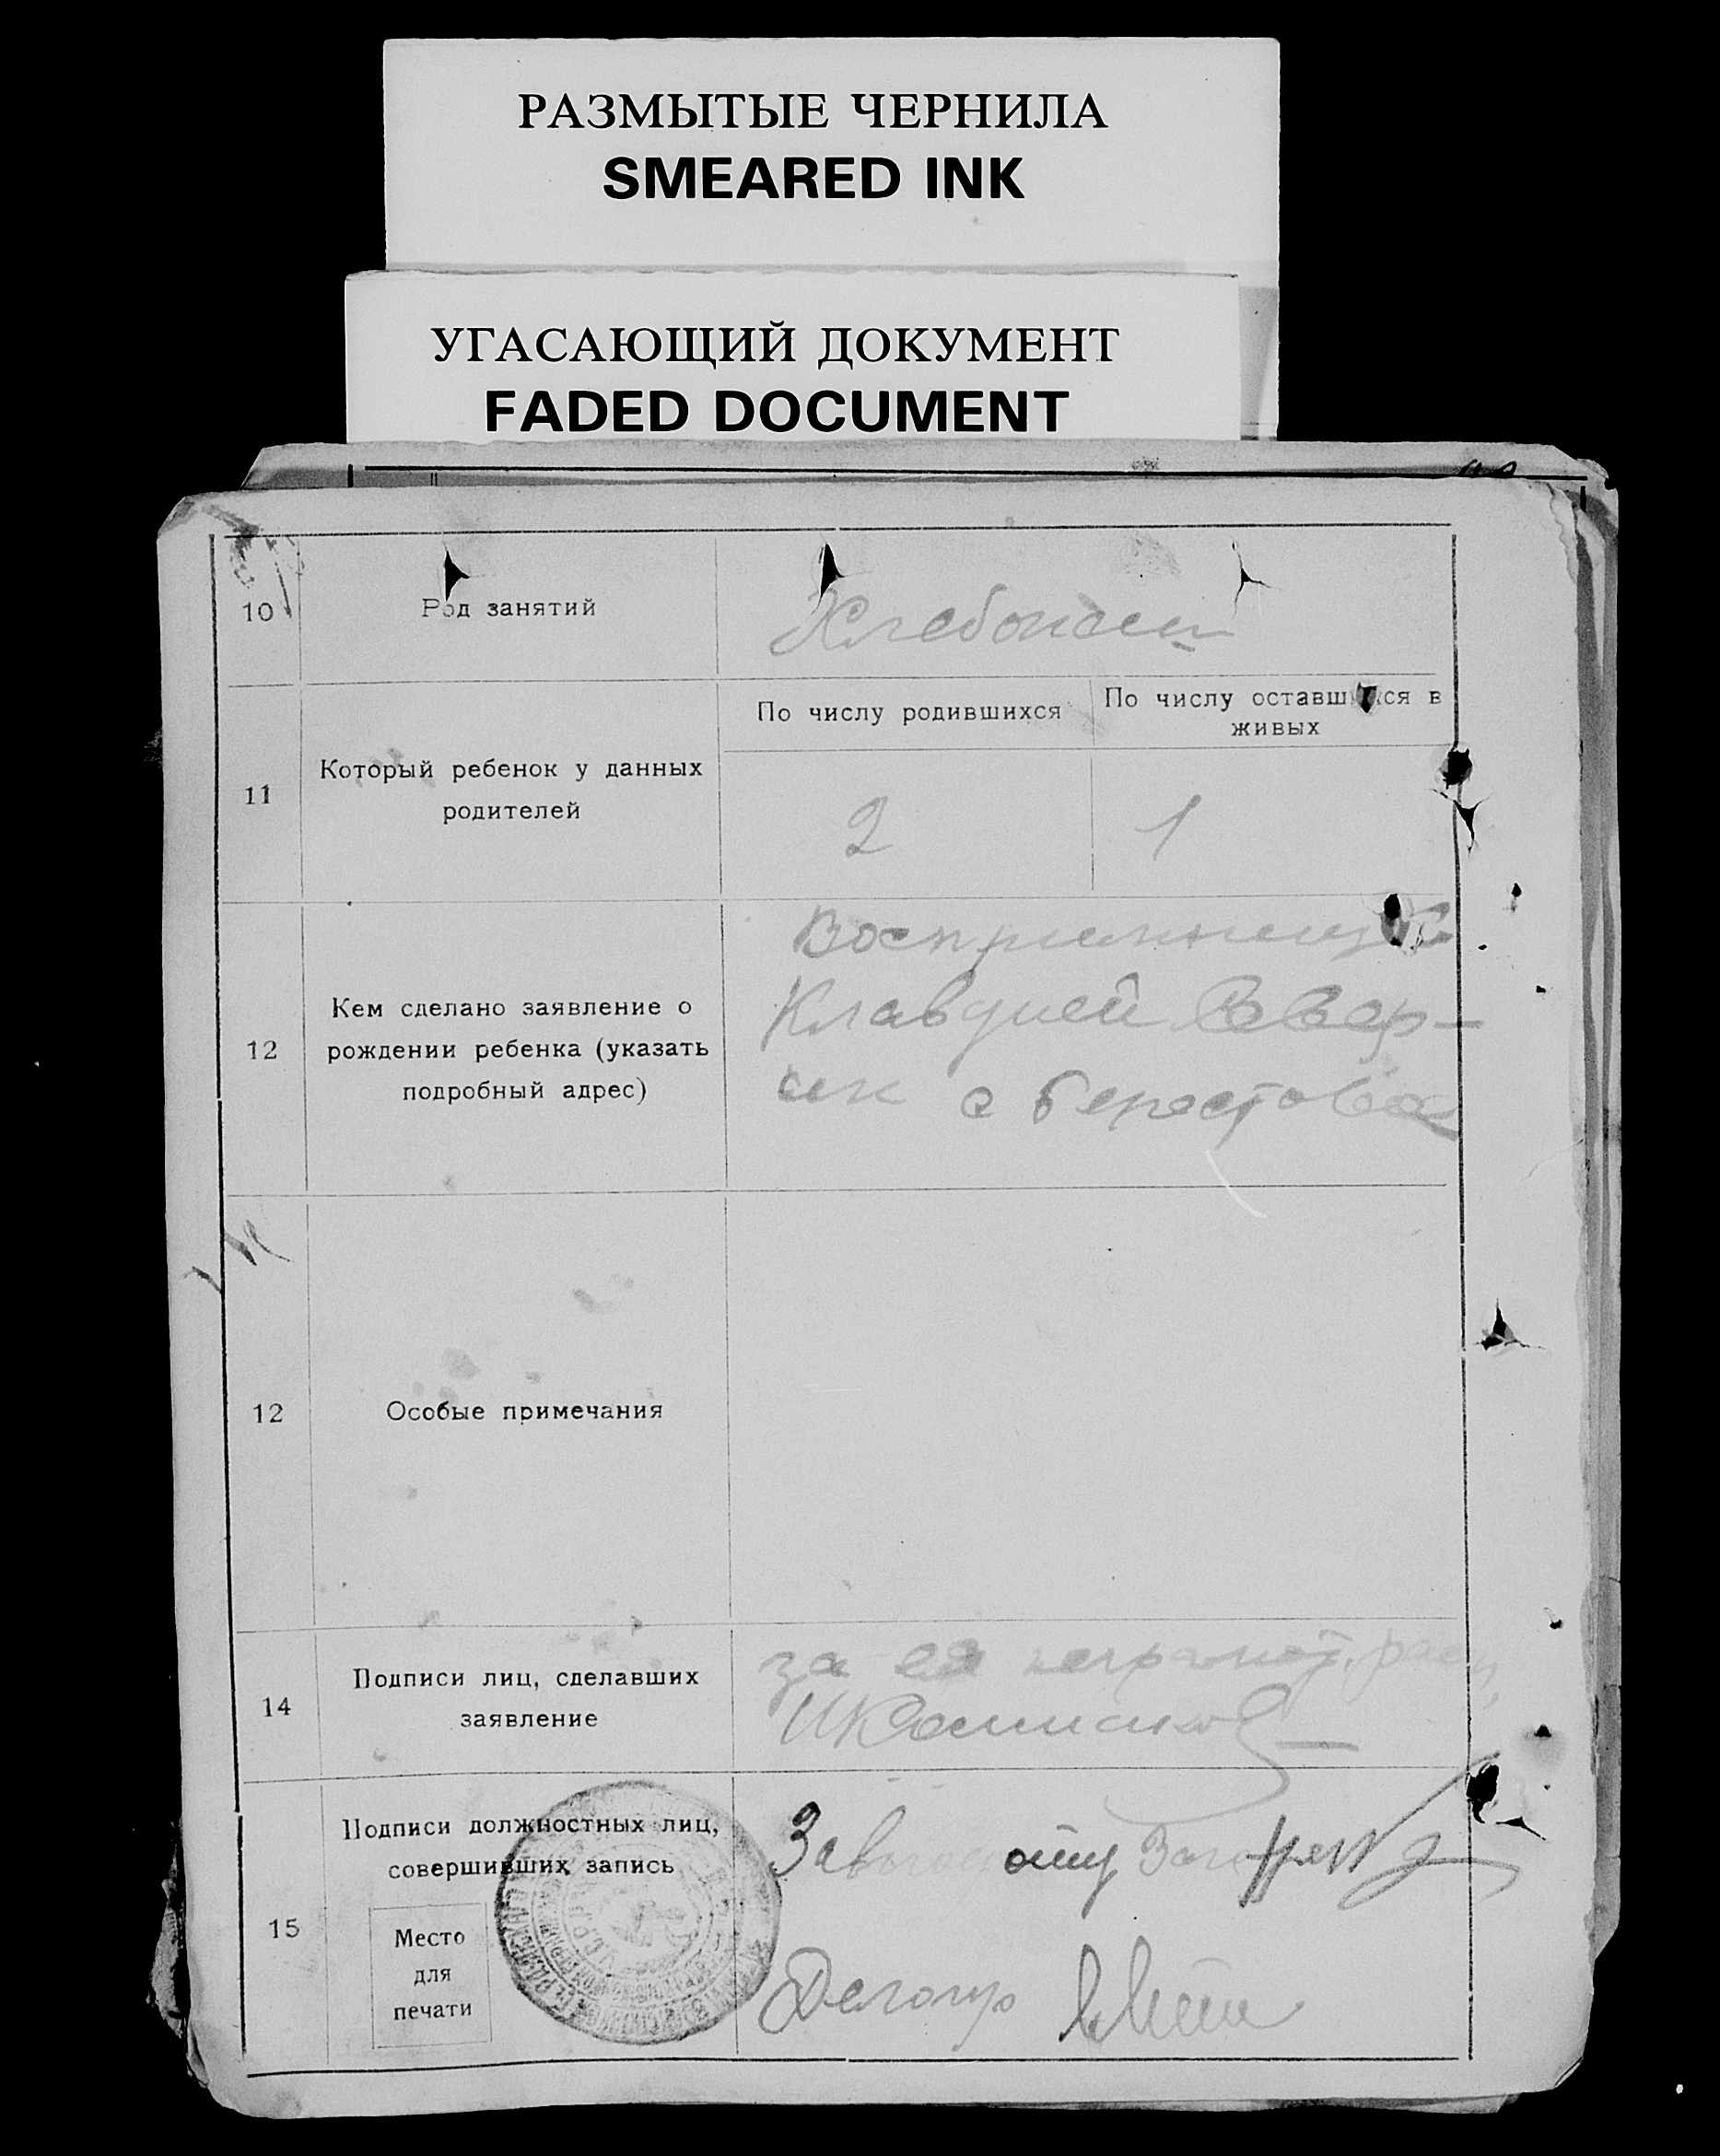 РАЗМЫТЫЕ ЧЕРНИЛА
SMEARED INK
УГАСАЮЩИЙ ДОКУМЕНТ
FADED DOCUMENT
10
Род занятий
Хлебопаш
11
Который ребенок у данных
родителей
По числу родившихся
По числу оставшихся в
живых
2
1
12
Кем сделано заявление о
рождении ребенка (указать
подробный адрес)
Восприемницей
Клавдией
с Берестовое
12
Особые примечания
14
Подписи лиц, сделавших
заявление
за ея неграмот. расп.
15
Подписи должностных лиц,
совершивших запись
Место
для
печати
Делопр